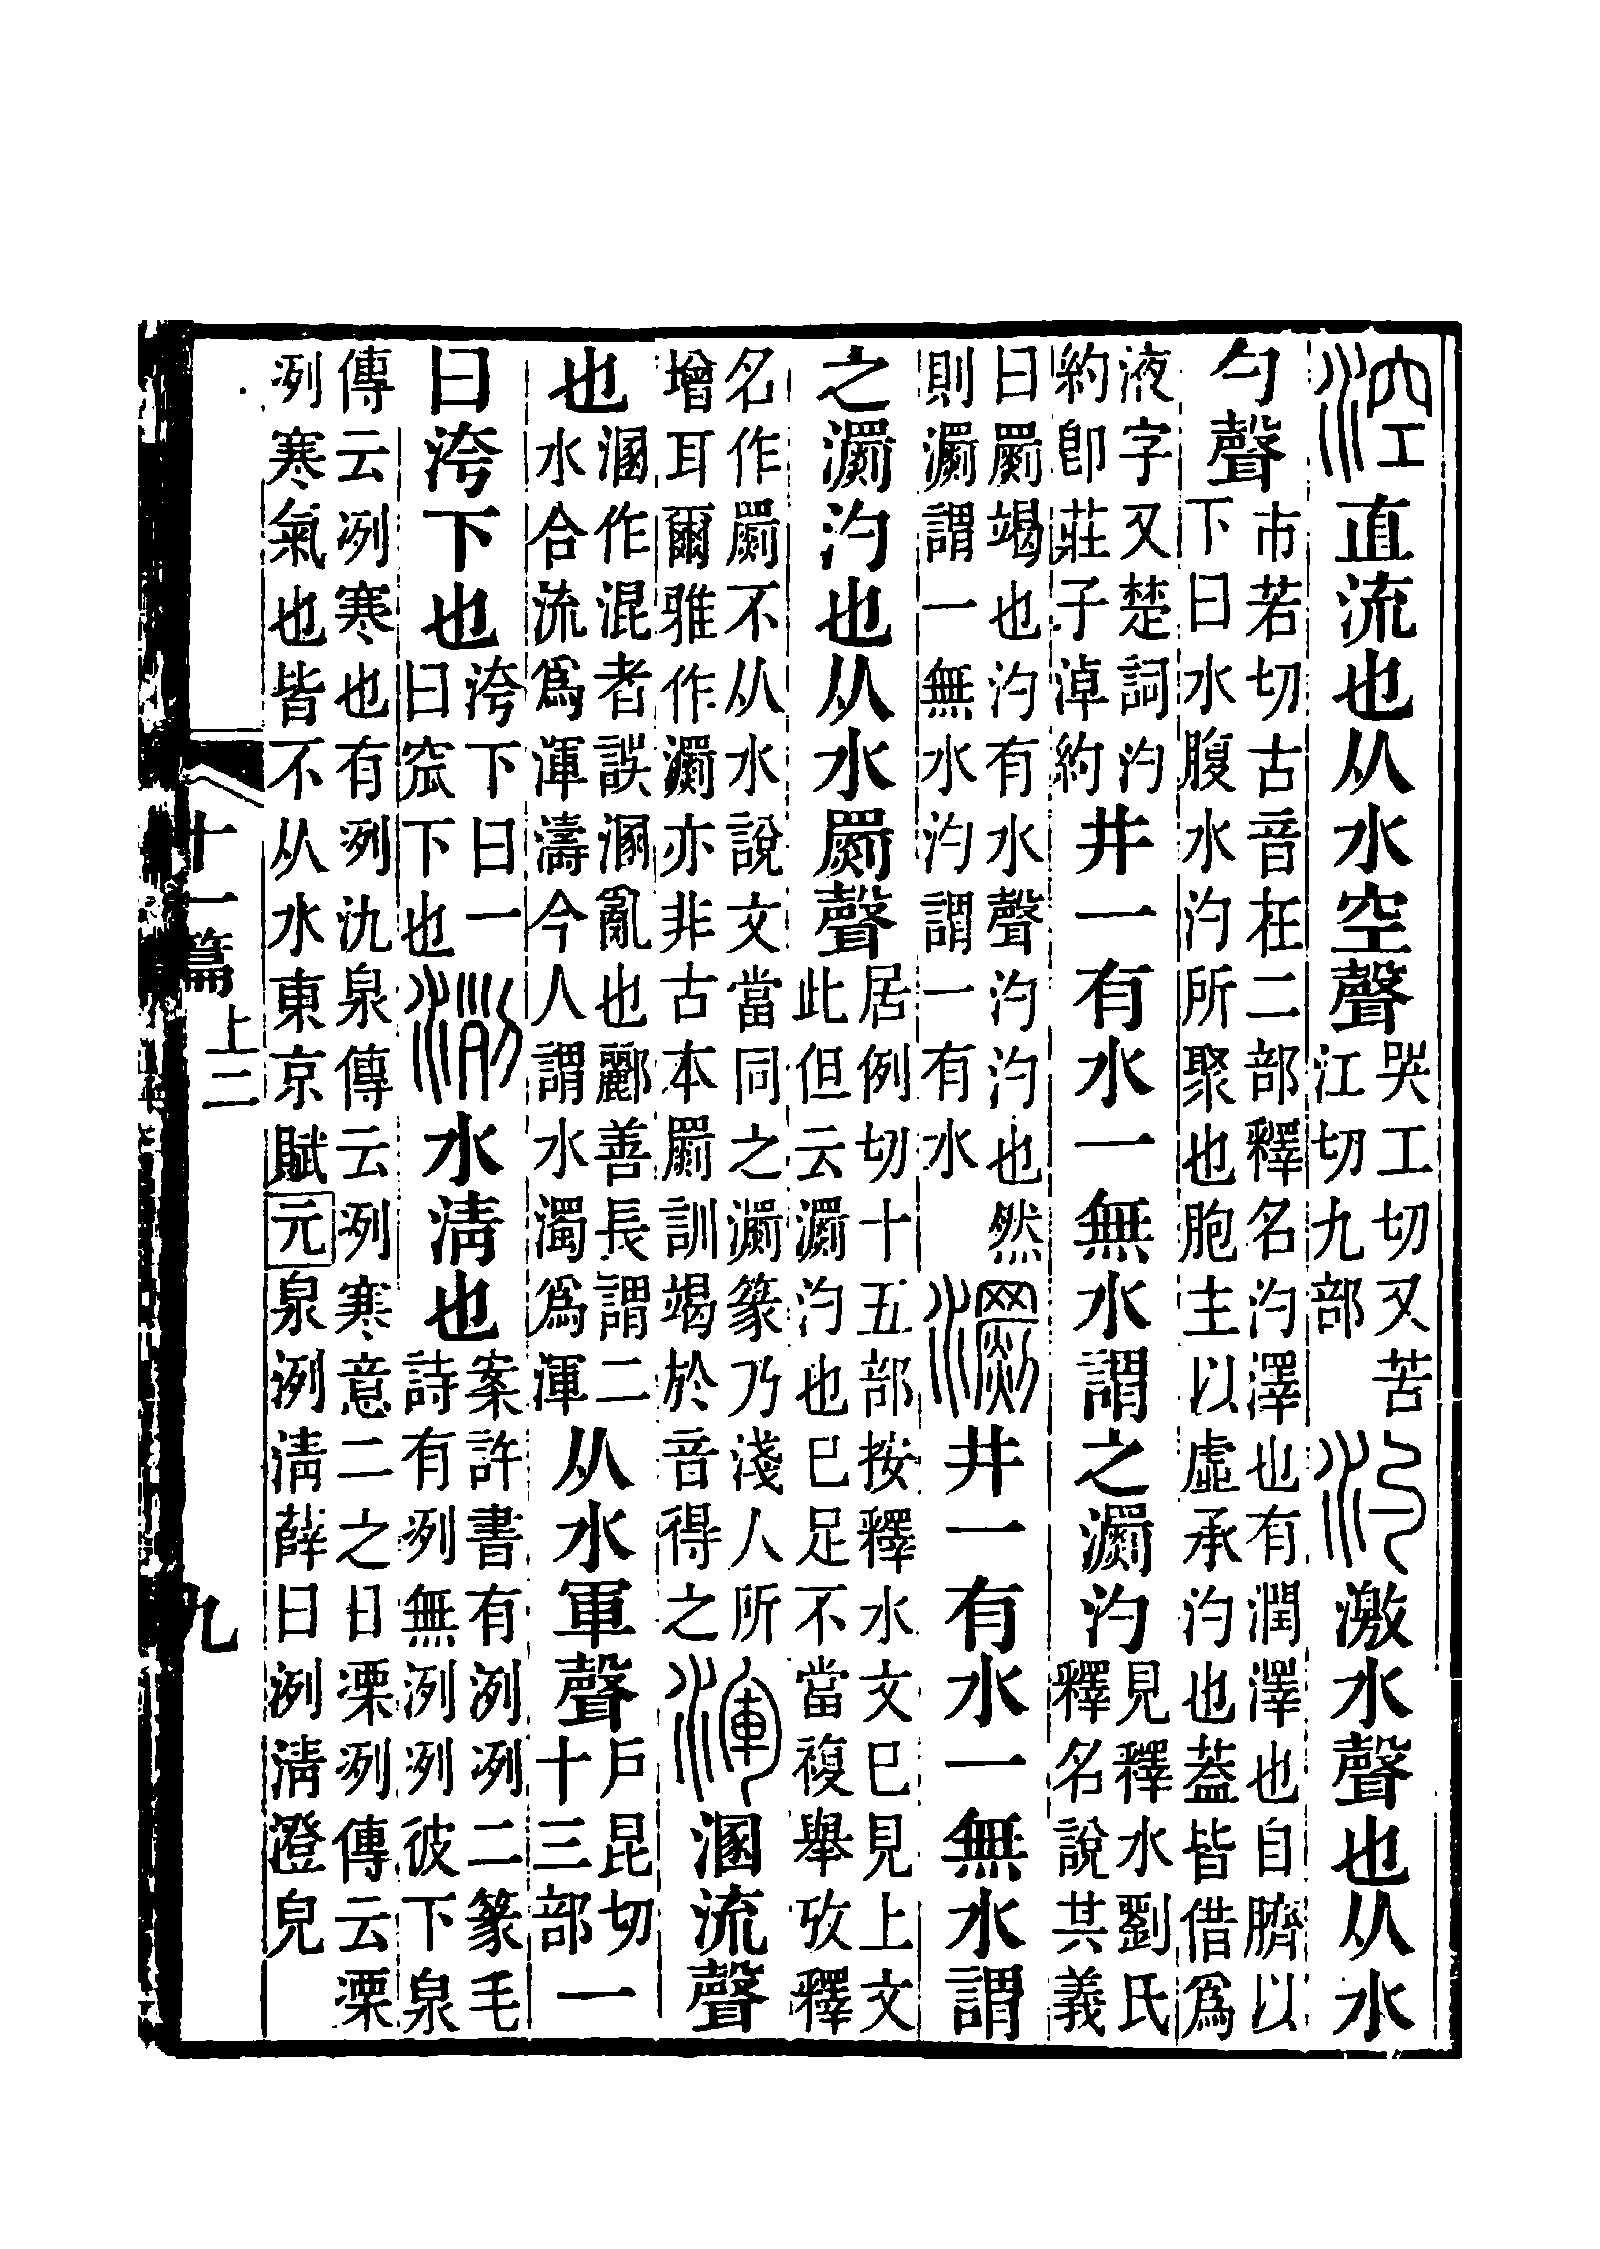 涳直流也从水空聲哭工切又苦江切九部汋激水聲也从水
勺聲市若切古音在二部釋名汋澤也有潤澤也自臍以下曰水腹水汋所聚也胞主以虛承汋也葢皆借爲
液字又楚詞汋約卽莊子淖約井一有水一無水謂之瀱汋見釋水劉氏釋名說其義
曰罽竭也汋有水聲汋汋也然則瀱謂一無水汋謂一有水瀱井一有水一無水謂
之瀱汋也从水罽聲居例切十五部按釋水文巳見上文此但云瀱汋也巳足不當複舉攷釋
名作罽不从水說文當同之瀱篆乃淺人所增耳爾雅作瀱亦非古本罽訓竭於音得之渾溷流聲
也溷作混者誤溷亂也酈善長謂二水合流爲渾濤今人謂水濁爲渾从水軍聲戶昆切十三部一
曰洿下也洿下曰一曰窊下也洌水淸也案許書有洌冽二篆毛詩有冽無洌冽彼下泉
傳云冽寒也有冽氿泉傳云冽寒意二之日溧冽傳云溧冽寒氣也皆不从水東京賦元泉洌淸薛曰洌淸澄皃
十一篇上二 九